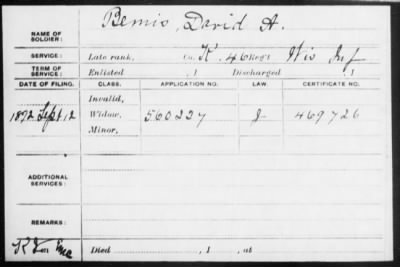 NAME OF SOLDIER: Bemis, David A.
SERVICE: Late rank, Co. K, 46 Reg't Wis Inf
TERM OF SERVICE: Enlisted , 1 Discharged , 1
DATE OF FILING. CLASS. APPLICATION NO. LAW. CERTIFICATE NO.
Invalid,
1892 Sept 12 Widow, 560227 469726
Minor,
ADDITIONAL SERVICES:
REMARKS:
Died , 1 , at